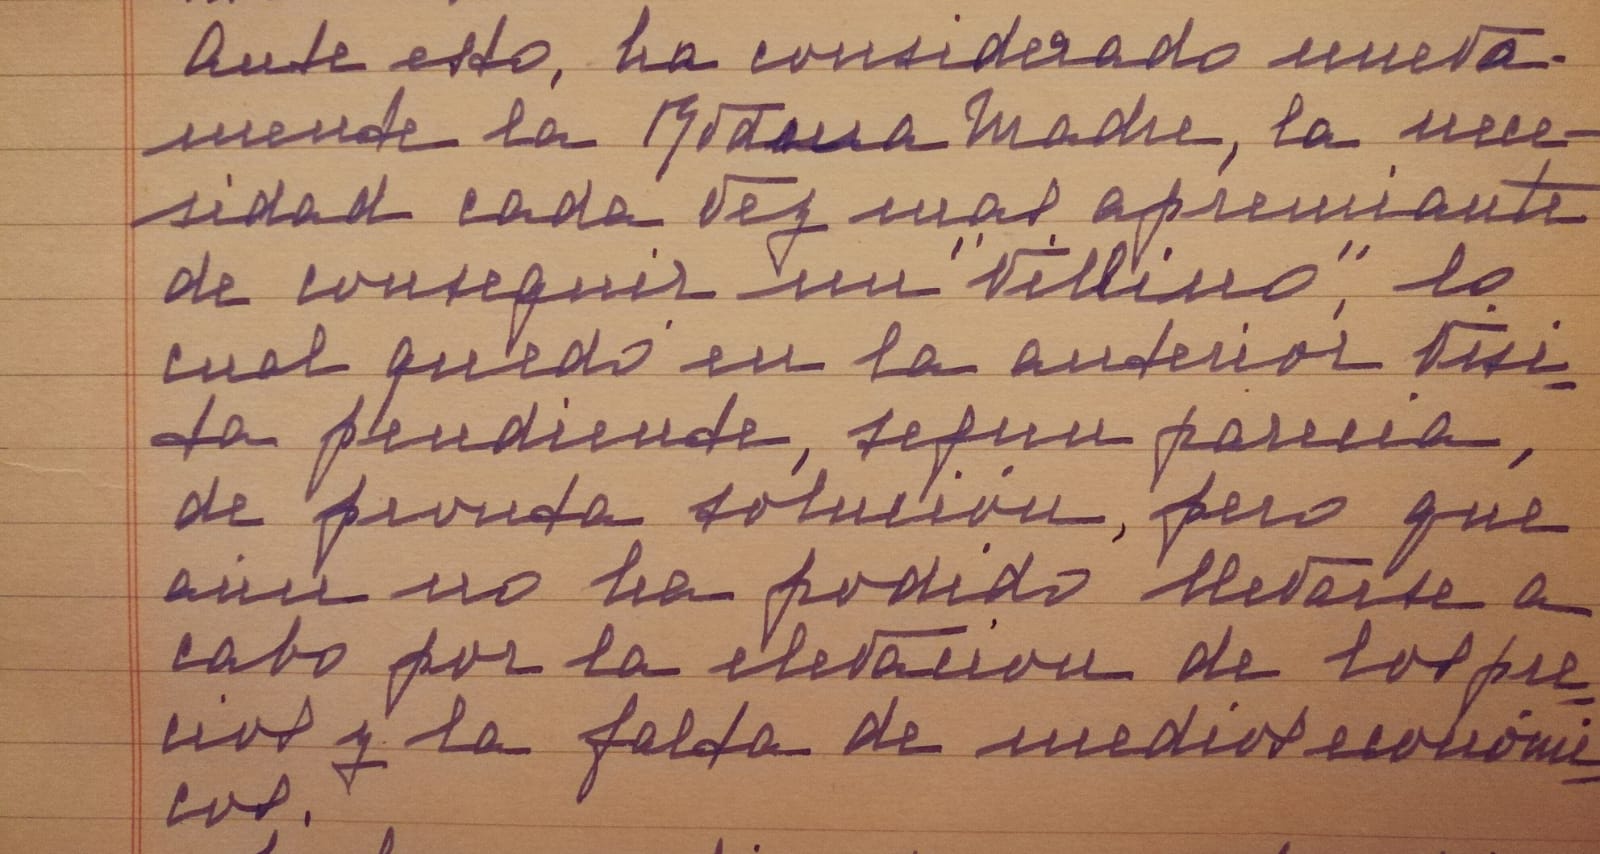 Ante esto, ha considerado nueva-
mente la Madre, la nece-
sidad cada vez mas apremiante
de conseguir un "Villino", lo
cual quedó en la anterior visi-
ta pendiente, segun parecia,
de pronta solución, pero que
aún no ha podido llevarse a
cabo por la elevación de los pre-
cios y la falta de medios económi-
cos.